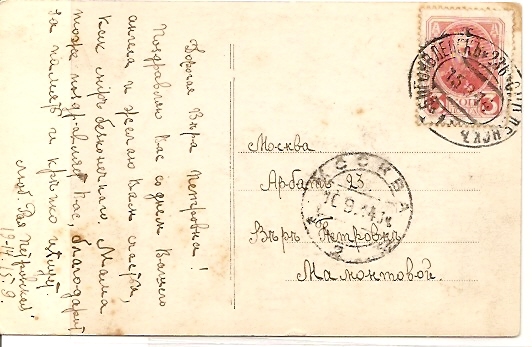 Дорогая Вѣра Петровна!
Поздравляю Вас со днем Вашего
ангела и желаю Вам счастья,
как міръ безконечнаго. Мама
тоже поздравляет Вас, благодарит
за память и крѣпко цѣлует.
Люб. Вас
19-14/15 9
Москва
Арбатъ 23.
Вѣрѣ Петровнѣ
Мамонтовой.
МОСКВА
16.9.14
2
КОП